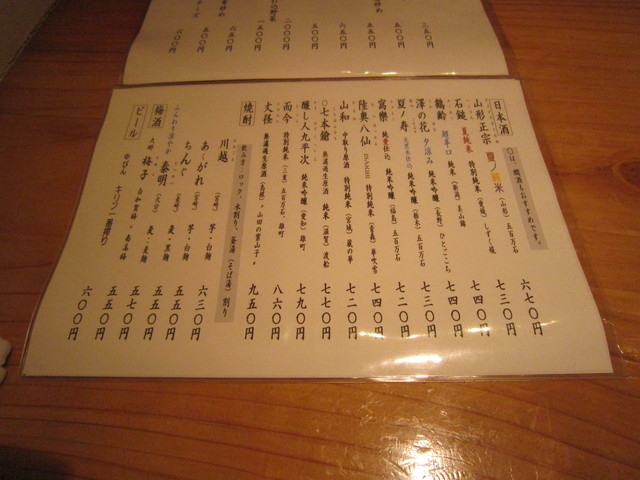 日本酒
○は、燗酒もおすすめです。
山形正宗 夏ノ純米 (山形) 五百万石 六七〇円
石鎚 夏純米 特別純米 (愛媛) しずく媛 七三〇円
鶴齢 超辛口 純米 (新潟) 美山錦 七四〇円
澤の花 夕涼み 純米吟醸 (長野) ひとごこち 七四〇円
夏ノ寿 純米吟醸 (栃木) 五百万石 七三〇円
寫樂 純愛仕込 純米吟醸 (福島) 五百万石 七二〇円
陸奥八仙 ISARIBI 特別純米 (青森) 華吹雪 七四〇円
山和 中取り原酒 特別純米 (宮城) 蔵の華 七二〇円
○七本鎗 無濾過生原酒 純米 (滋賀) 渡船 七七〇円
醸し人九平次 純米吟醸 (愛知) 雄町 七九〇円
而今 特別純米 (三重) 五百万石、雄町 八六〇円
丈径 無濾過生原酒 (島根) 山田の里山子 九五〇円
焼酎
飲み方…ロック、水割り、釜湯(そば湯)割り
川越 (宮崎) 芋・白麹 六三〇円
あくがれ (宮崎) 芋・白麹 五五〇円
ちんぐ (長崎) 麦・黒麹 五五〇円
ふんわり涼やか 泰明 (大分) 麦・麦麹 五七〇円
梅酒
梅子 白加賀梅 南高梅 五五〇円
ビール
中びん キリン一番搾り 六〇〇円